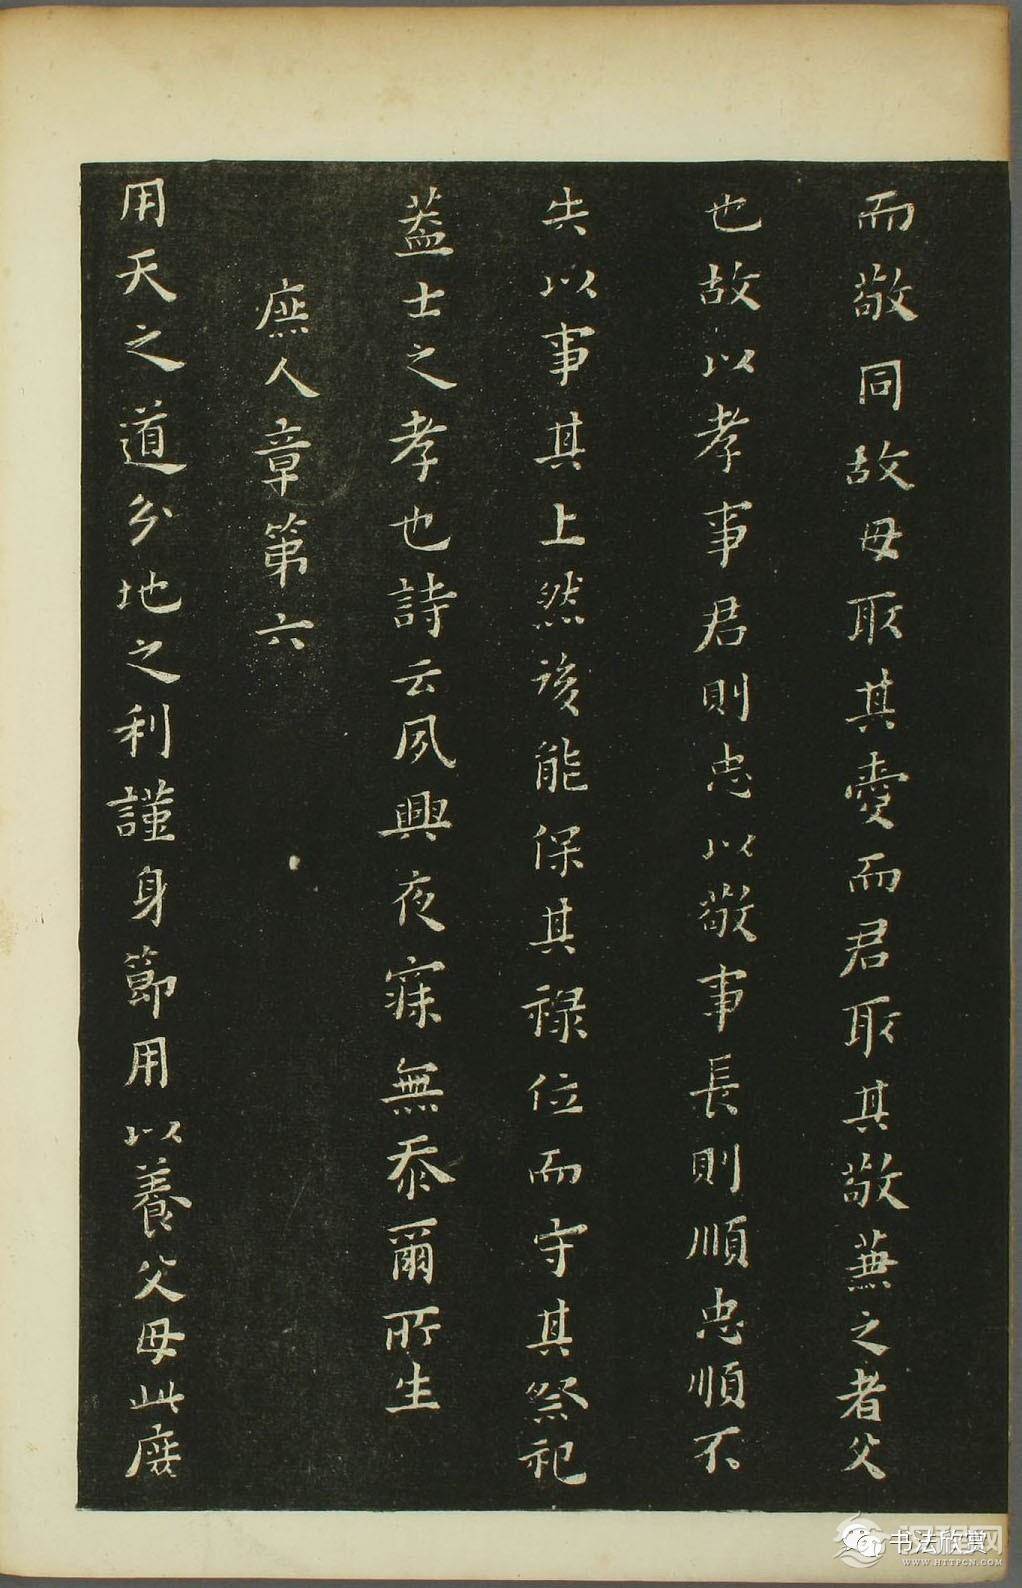 而敬同故母取其愛而君取其敬兼之者父
也故以孝事君則忠以敬事長則順忠順不
失以事其上然後能保其祿位而守其祭祀
蓋士之孝也詩云夙興夜寐無忝爾所生
庶人章第六
用天之道分地之利謹身節用以養父母此庶
书法欣赏
WWW.HTTPCN.COM